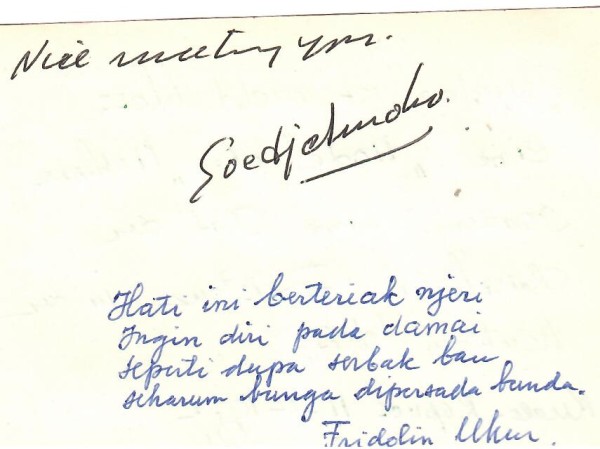 Nice meeting you.
Soedjatmoko.
Hati ini berteriak njeri
Ingin diri pada damai
seperti dupa serbak bau
seharum bunga dipersada bunda.
Fridolin Ukur.